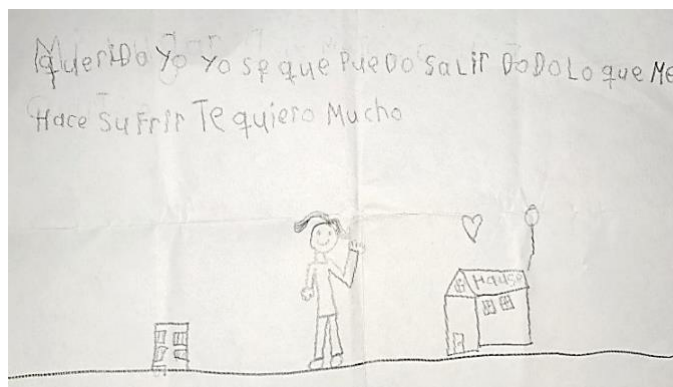 QueriDo Yo Yo se que PueDo SaLir DoDo Lo que Me
Hace SuFrir Te quiero Mucho
House